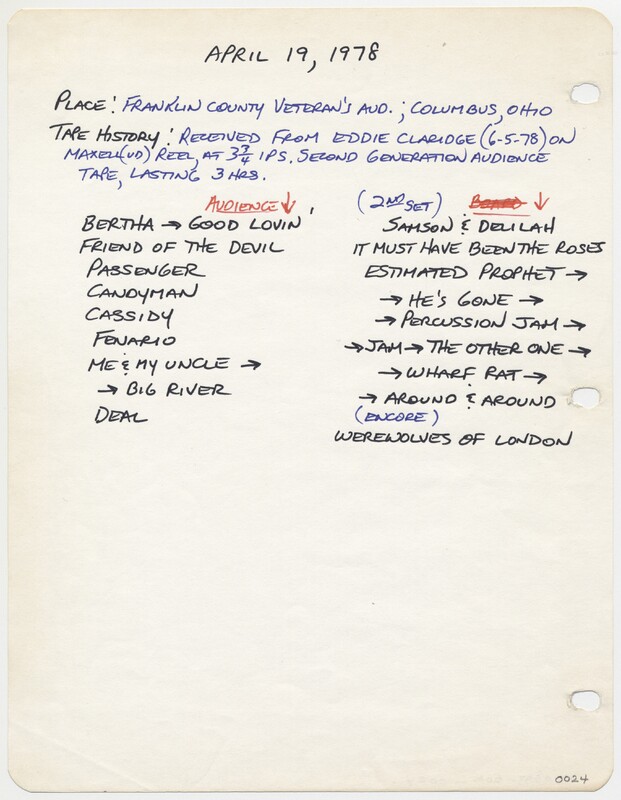 APRIL 19, 1978
PLACE: FRANKLIN COUNTY VETERAN'S AUD.; COLUMBUS, OHIO
TAPE HISTORY: RECEIVED FROM EDDIE CLARIDGE (6-5-78) ON
MAXELL (UD) REEL, AT 3 3/4 IPS. SECOND GENERATION AUDIENCE
TAPE, LASTING 3 HRS.
AUDIENCE ↓
BERTHA → GOOD LOVIN'
FRIEND OF THE DEVIL
PASSENGER
CANDYMAN
CASSIDY
FENARIO
ME & MY UNCLE →
→ BIG RIVER
DEAL
(2ND SET) BOARD ↓
SAMSON & DELILAH
IT MUST HAVE BEEN THE ROSES
ESTIMATED PROPHET →
→ HE'S GONE →
→ PERCUSSION JAM →
→ JAM → THE OTHER ONE →
→ WHARF RAT →
→ AROUND & AROUND
(ENCORE)
WEREWOLVES OF LONDON
0024